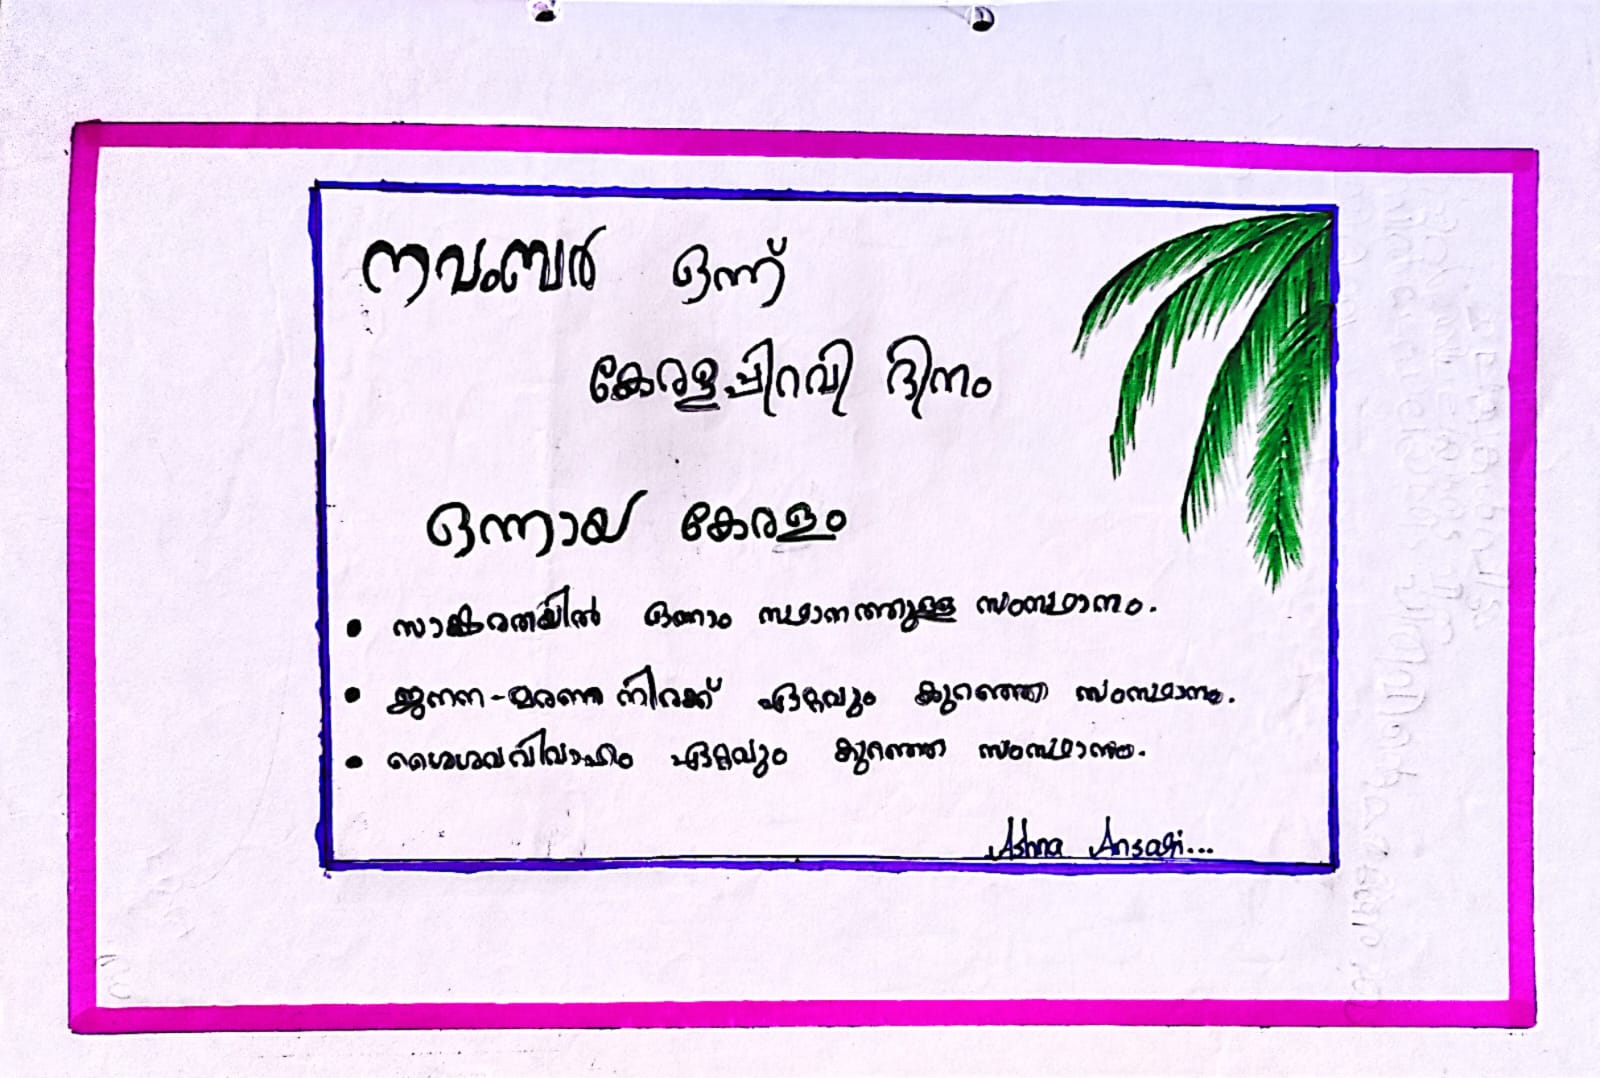 നവംബർ ഒന്ന്
കേരളപ്പിറവി ദിനം
ഒന്നായ കേരളം
• സാക്ഷരതയിൽ ഒന്നാം സ്ഥാനത്തുള്ള സംസ്ഥാനം.
• ജനന-മരണ നിരക്ക് ഏറ്റവും കുറഞ്ഞ സംസ്ഥാനം.
• ശൈശവവിവാഹം ഏറ്റവും കുറഞ്ഞ സംസ്ഥാനം.
Ashna Ansari...